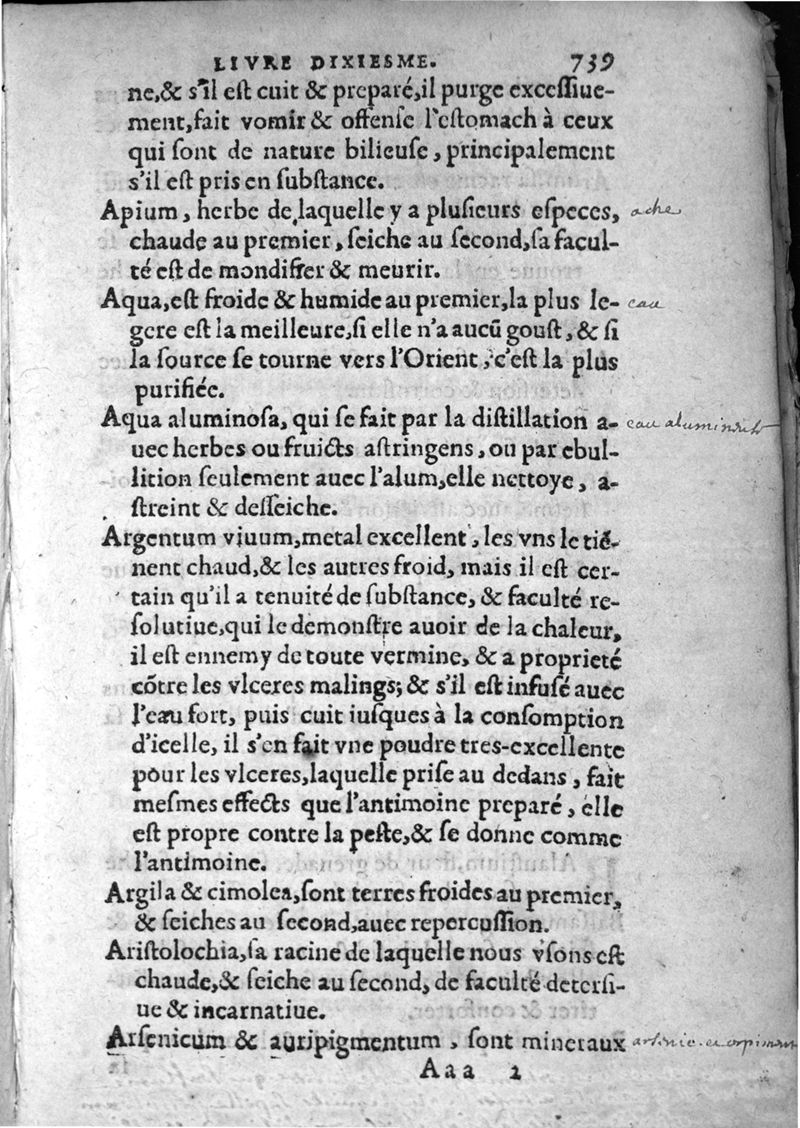 LIVRE DIXIESME. 739
ne,& s'il est cuit & preparé,il purge excessiue-
ment,fait vomir & offense l'estomach à ceux
qui sont de nature bilieuse, principalement
s'il est pris en substance.
Apium, herbe de laquelle y a plusieurs especes, ache
chaude au premier, seiche au second,sa facul-
té est de mondifier & meurir.
Aqua,est froide & humide au premier,la plus le- eau
gere est la meilleure,si elle n'a aucū goust, & si
la source se tourne vers l'Orient, c'est la plus
purifiée.
Aqua aluminosa, qui se fait par la distillation a- eau
uec herbes ou fruicts astringens, ou par ebul-
lition seulement auec l'alum,elle nettoye, a-
streint & desseiche.
Argentum viuum,metal excellent, les vns le tiē-
nent chaud,& les autres froid, mais il est cer-
tain qu'il a tenuité de substance, & faculté re-
solutiue,qui le demonstre auoir de la chaleur,
il est ennemy de toute vermine, & a proprieté
cōtre les vlceres malings; & s'il est infusé auec
l'eau fort, puis cuit iusques à la consomption
d'icelle, il s'en fait vne poudre tres-excellente
pour les vlceres,laquelle prise au dedans, fait
mesmes effects que l'antimoine preparé, elle
est propre contre la peste,& se donne comme
l'antimoine.
Argila & cimolea,sont terres froides au premier,
& seiches au second,auec repercussion.
Aristolochia,sa racine de laquelle nous vsons est
chaude,& seiche au second, de faculté detersi-
ue & incarnatiue.
Arsenicum & auripigmentum, sont mineraux arsenic. et orpiment
Aaa 2